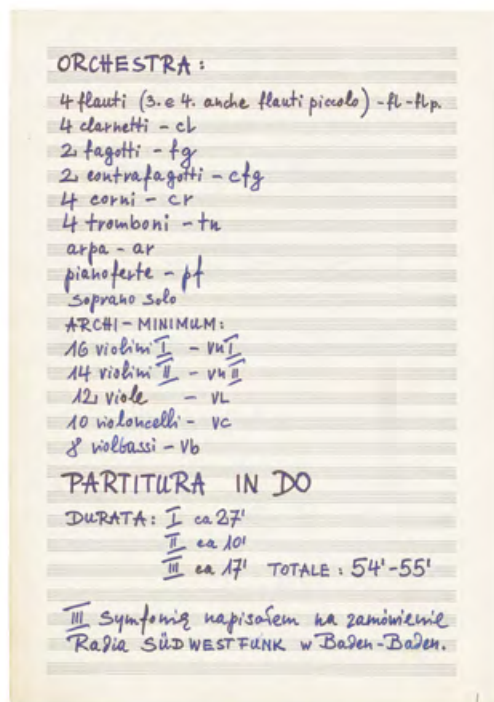 ORCHESTRA:
4 flauti (3. e 4. anche flauti piccolo) - fl - flp.
4 clarnetti - cl
2 fagotti - fg
2 contrafagotti - cfg
4 corni - cr
4 tromboni - tn
arpa - ar
pianoforte - pf
soprano solo
ARCHI - MINIMUM:
16 violini I - vn I
14 violini II - vn II
12 viole - vl
10 violoncelli - vc
8 violbassi - vb
PARTITURA IN DO
DURATA: I ca 27'
II ca 10'
III ca 17' TOTALE: 54'-55'
III Symfonię napisałem na zamówienie
Radia SÜDWESTFUNK w Baden-Baden.